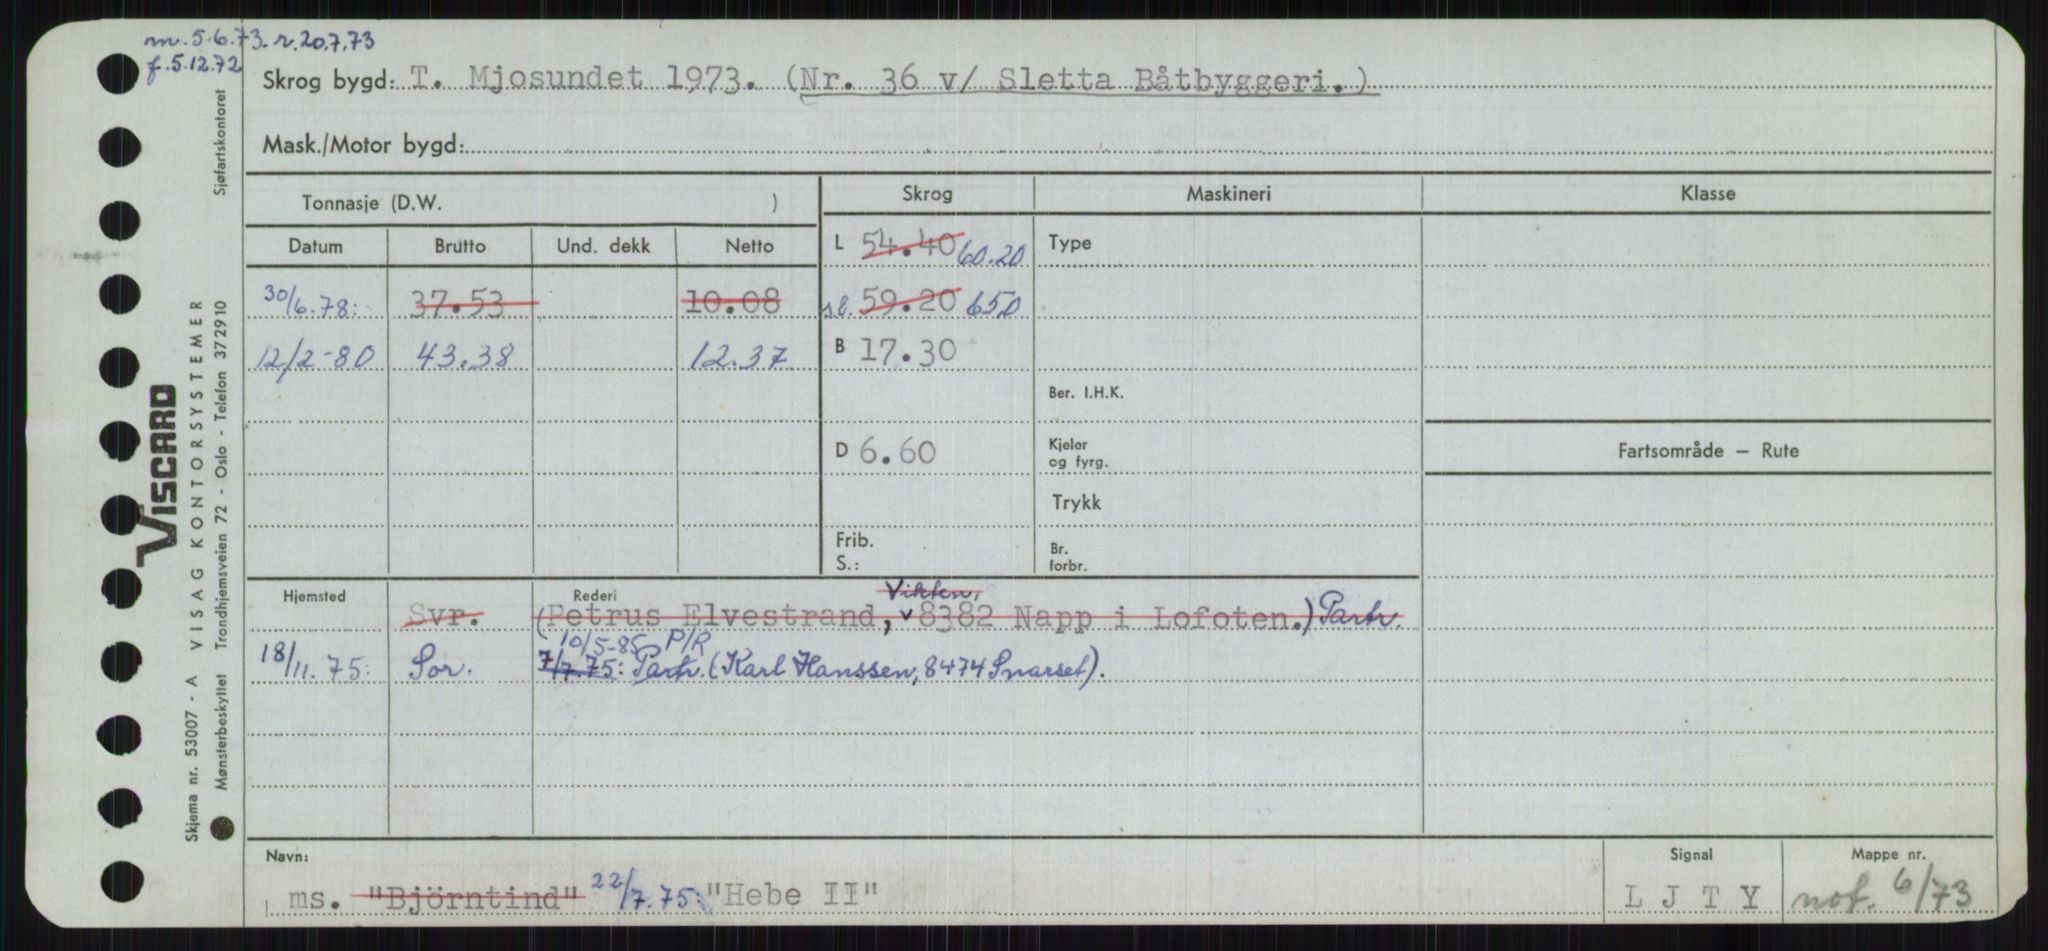 m. 5.6.73. r. 20.7.73
f. 5.12.72
Skrog bygd: T. Mjosundet 1973. (Nr. 36 v/ Sletta Båtbyggeri.)
Mask./Motor bygd:
Tonnasje (D.W. )
Skrog
Maskineri
Klasse
Datum Brutto Und. dekk Netto
L 54.40 60.20
Type
30/6.78: 37.53 10.08
s.l. 59.20 65.0
12/2-80 43.38 12.37
B 17.30
Ber. I.H.K.
D 6.60
Kjeler
og fyrg.
Fartsområde — Rute
Trykk
Frib.
S.:
Br.
forbr.
Hjemsted Rederi
Vikten,
Svr. (Petrus Elvestrand, v 8382 Napp i Lofoten.) Partr.
10/5-85 P/R
18/11.75: Sor. 7/7.75: Partr. (Karl Hanssen, 8474 Snarset).
Navn:
ms. "Björntind" 22/7.75: "Hebe II"
Signal
L J T Y
Mappe nr.
not. 6/73
VISCARD
Skjema nr. 53007 - A VISAG KONTORSYSTEMER
Mønsterbeskyttet Trondhjemsveien 72 - Oslo - Telefon 372910 Sjøfartskontoret